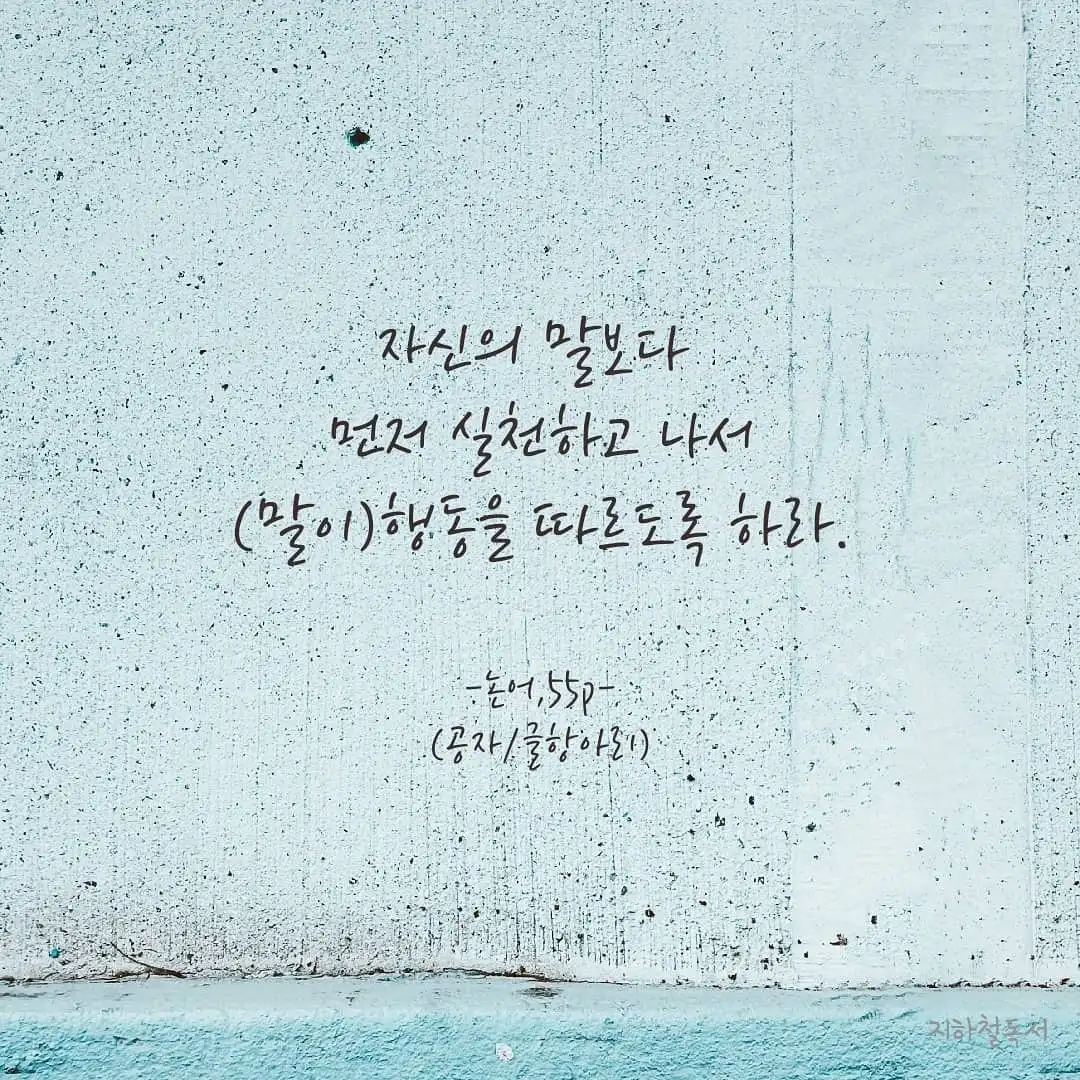 자신의 말보다
먼저 실천하고 나서
(말이)행동을 따르도록 하라.
-논어,55p-
(공자/글항아리)
지하철독서